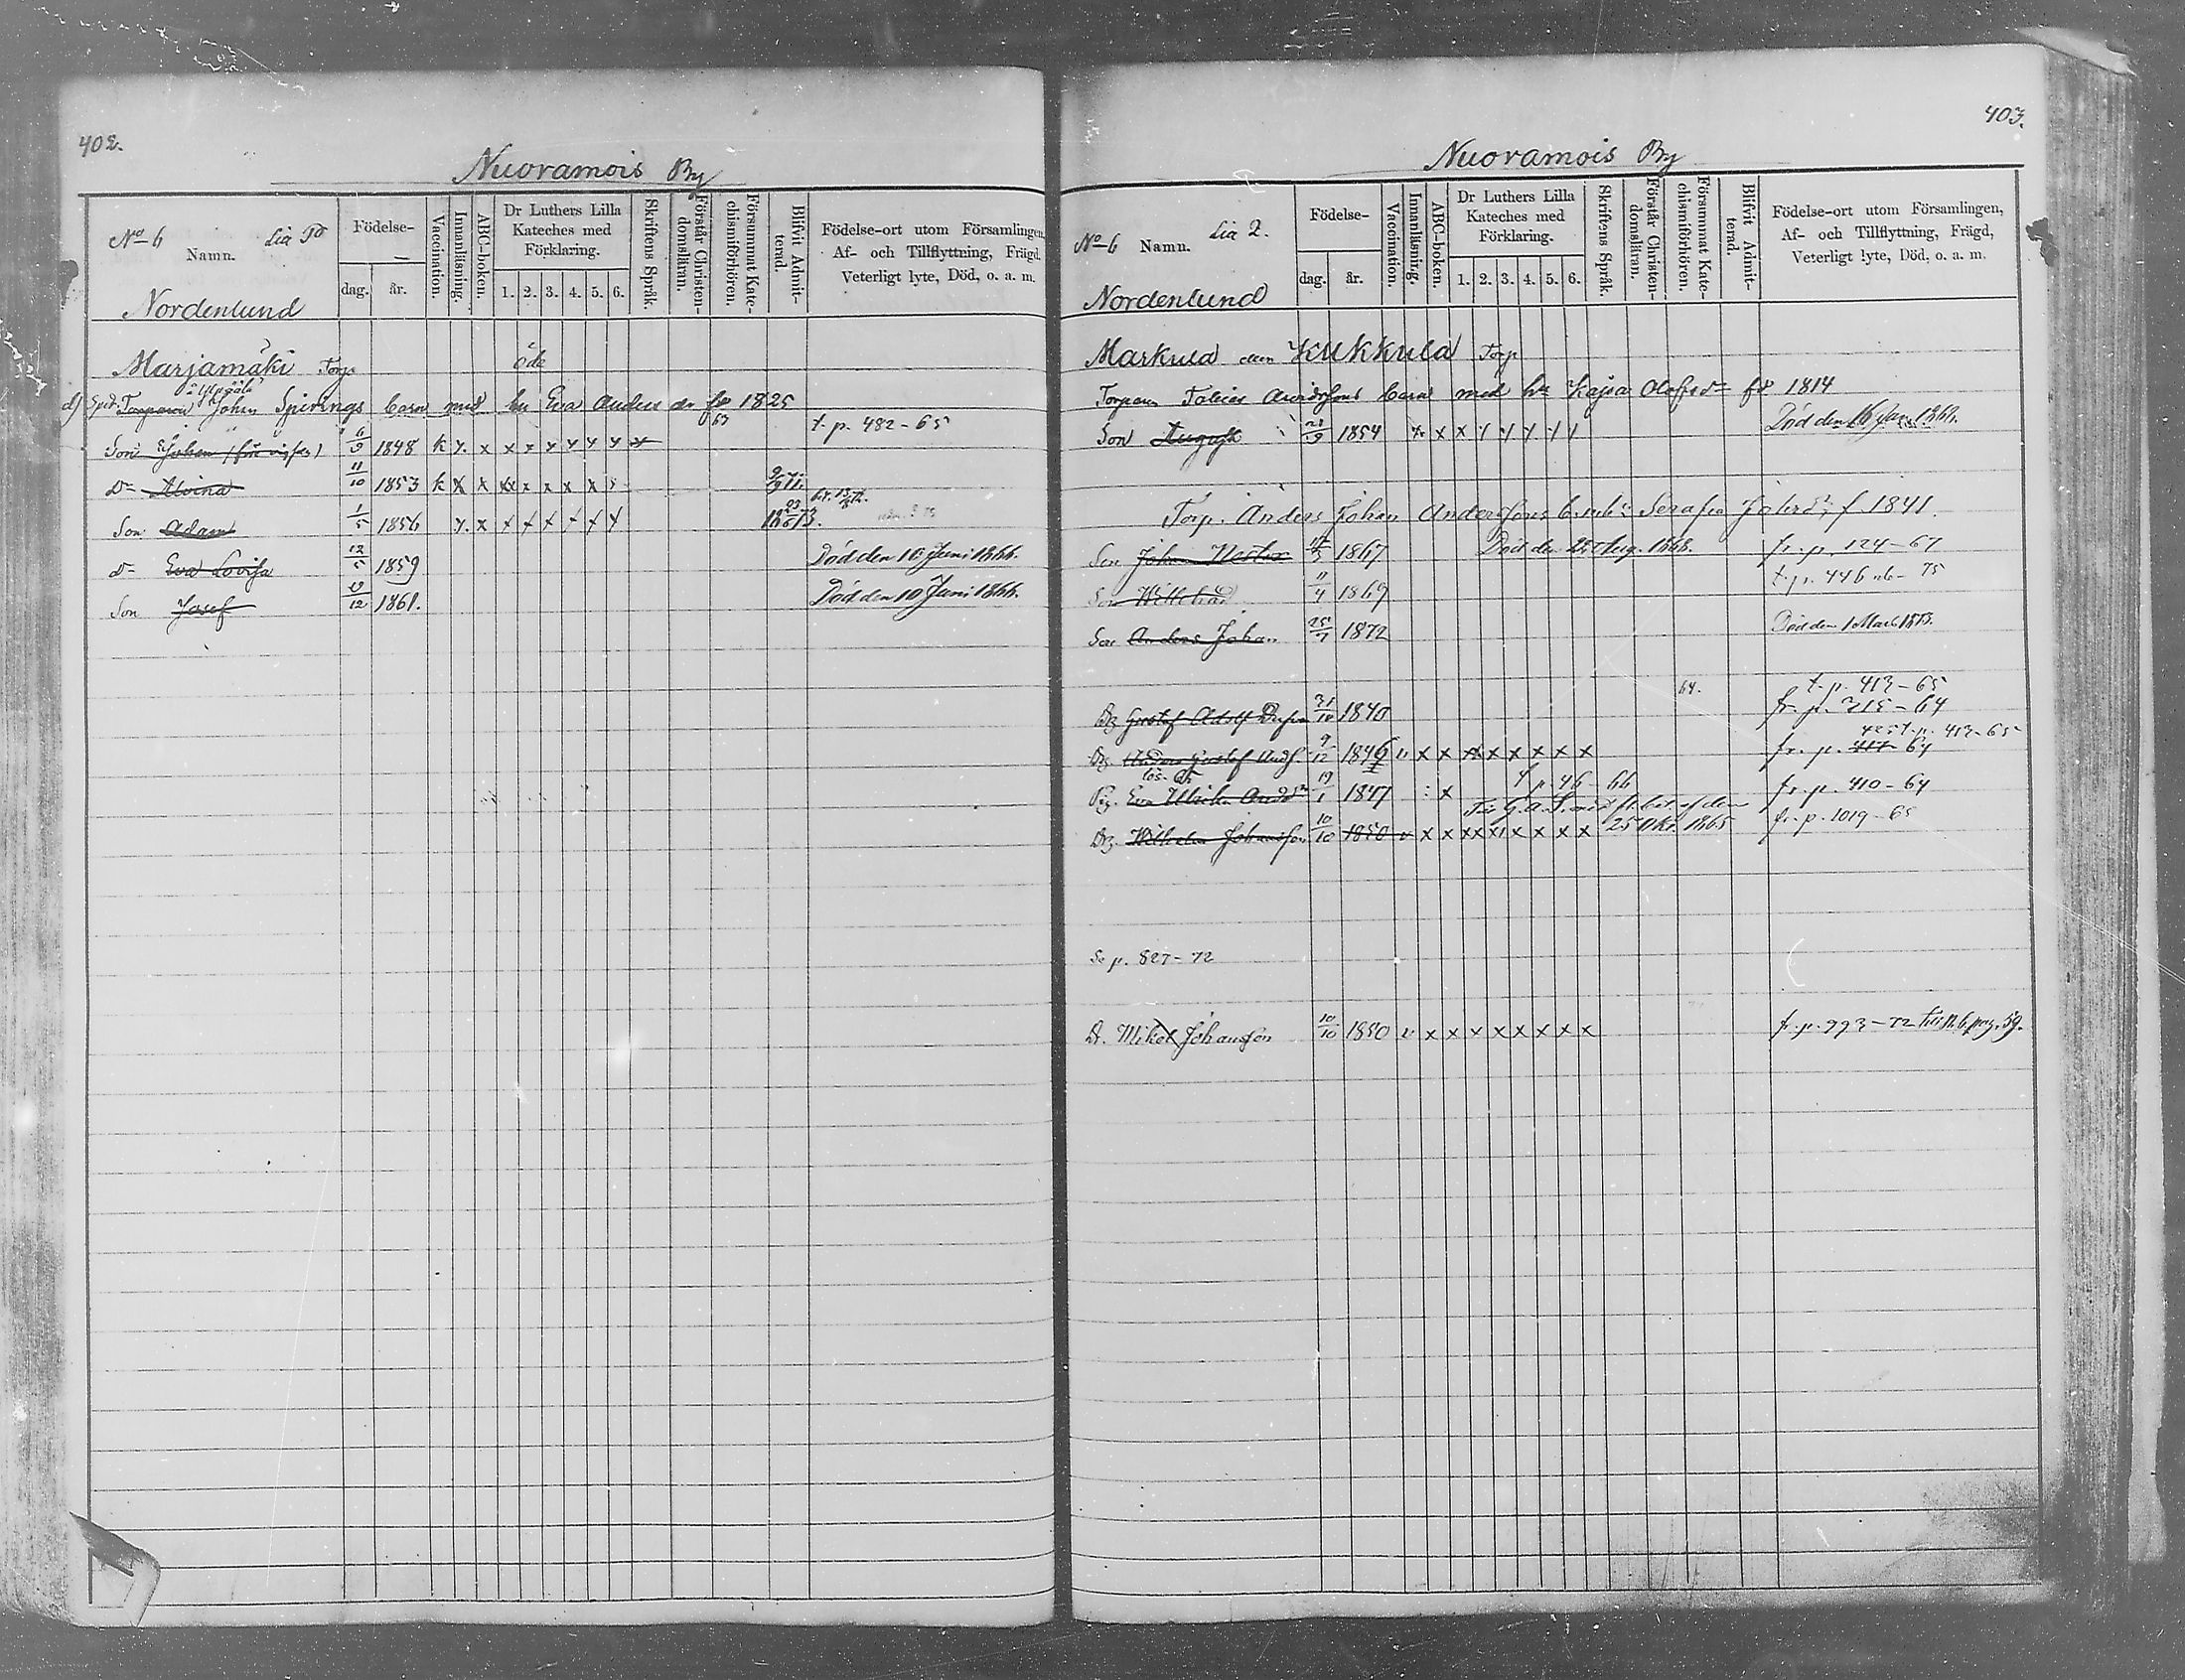 402.
Nuoramois By
No 6 Namn.
Födelse-
dag. år.
Vaccination.
Innanläsning.
ABC-boken.
Dr Luthers Lilla Kateches med Förklaring.
1. 2. 3. 4. 5. 6.
Skriftens Språk.
Förstår Christendomsläran.
Försummat Katechismiförhören.
Blifvit Admitterad.
Födelse-ort utom Församlingen,
Af- och Tillflyttning, Frägd,
Veterligt lyte, Död, o. a. m.
Nordenlund
Marjamäki Torp öde
Torparen Johan Spirings barn med Eva Anders dr 1825
63 t. p. 482-65
Son Johan 6/9 1848 k x x x x x x x x
dr Alvina 11/10 1853 k x x xx x x x x
Son Adam 1/5 1856 x x x x x x x x
dr Eva Lovisa 12/5 1859 Död den 10 Juni 1866.
Son Josef 1861. Död den 10 Juni 1866.
403.
Nuoramois By
No 6 Namn. Lia 2.
Födelse-
dag. år.
Vaccination.
Innanläsning.
ABC-boken.
Dr Luthers Lilla Kateches med Förklaring.
1. 2. 3. 4. 5. 6.
Skriftens Språk.
Förstår Christendomsläran.
Försummat Katechismiförhören.
Blifvit Admitterad.
Födelse-ort utom Församlingen,
Af- och Tillflyttning, Frägd,
Veterligt lyte, Död, o. a. m.
Nordenlund
Markula Kukkula Torp
Torparen Tobias Arvidssons barn med hu Kajsa Olofsdr 1814
Son August 1854 x x x Död den 16
Torp. Anders Johan Anderssons Serafia Johsdr f. 1841.
Son Johan Nestor 1867 Död den Aug. 1868. fr. p. 124-67
Son Wilhelm 11/4 1869 t. p. 446 75
Son Anders Johan 25/7 1872 Död den 1 Mars
64. t. p. 413-65
Drg Gustaf Adolf 31/10 1840 fr. p. 315-64
t. p. 413-65
Drg Anders Gustaf 9/12 1846 x x x x x x x x fr. p. 417-64
Pig. Eva Ulrika 19/1 1847 x t. p. 46-66 fr. p. 410-64
Drg Wilhelm Johansson 10/10 1850 v x x xx x x x x x 25 Okt. 1865 fr. p. 1019-65
Se p. 827-72
Dr. Mikel Johansson 10/10 1850 v x x x x x x x x fr. p. 993-72